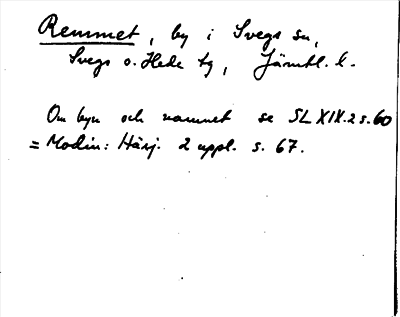 Remmet, by i Svegs sn,
Svegs o. Hede tg, Jämtl. l.
Om byn och namnet se SL XIX.2 s. 60
= Modin: Härj. 2 uppl. s. 67.